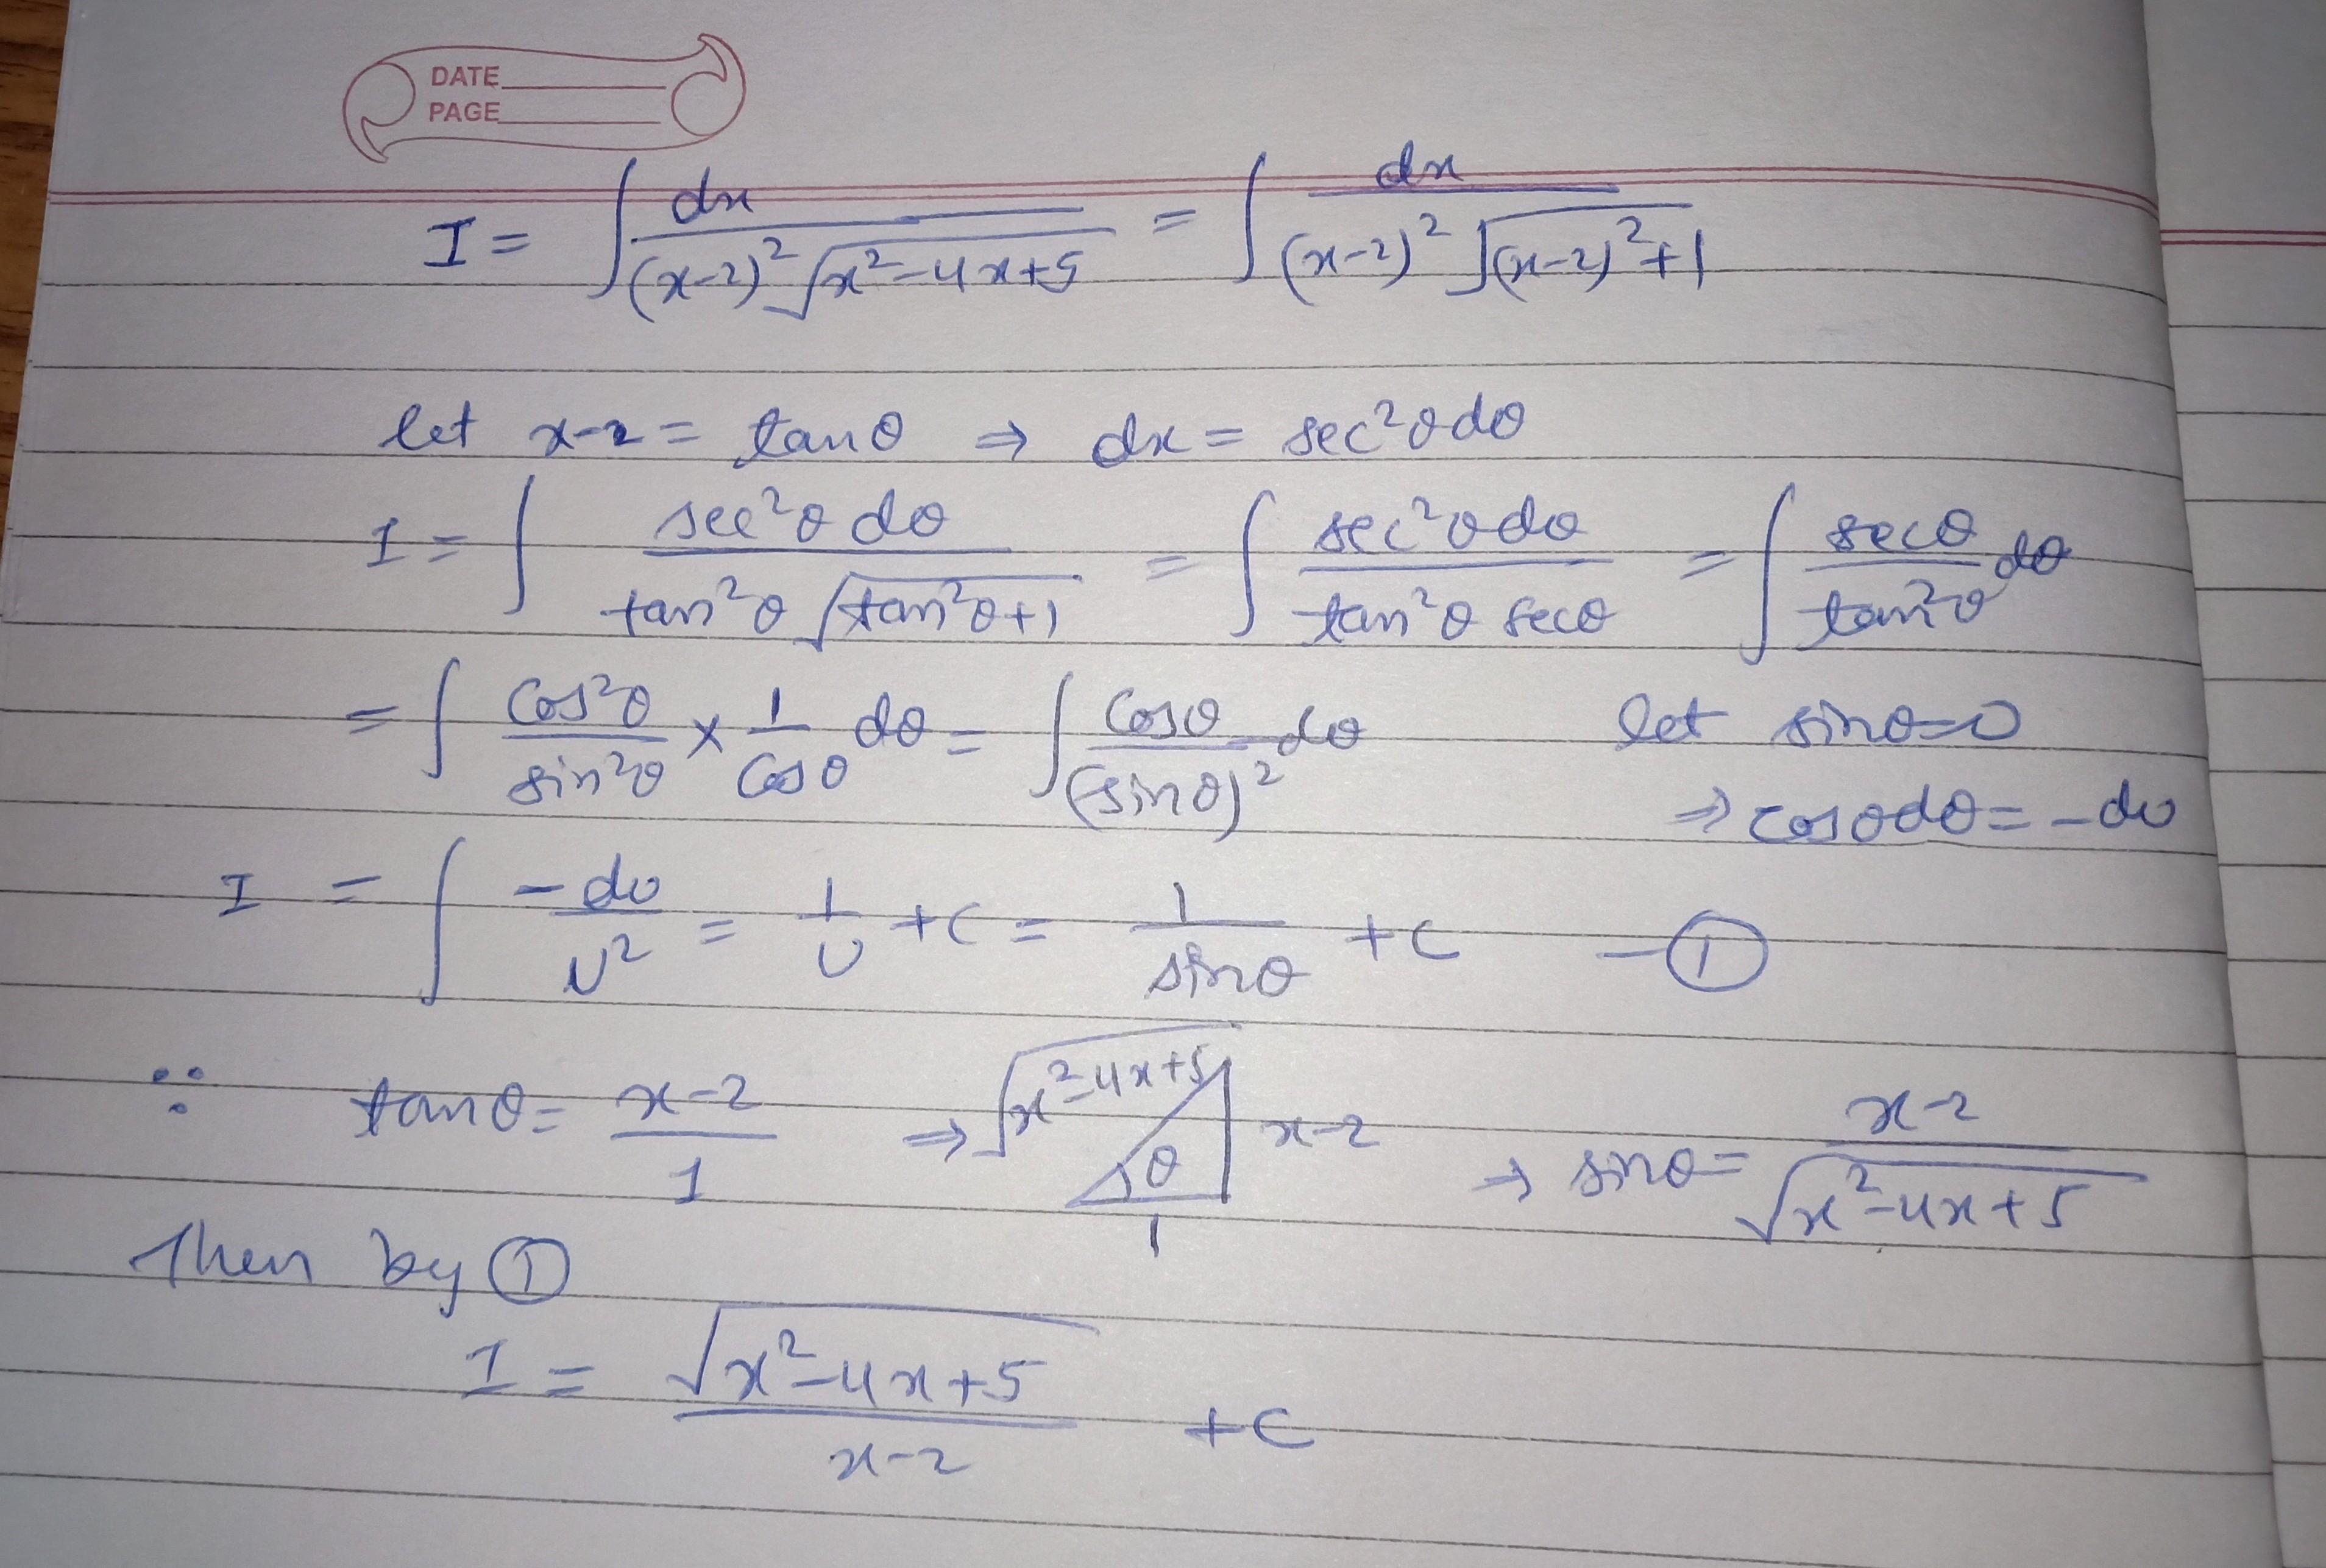 DATE
PAGE
I = ∫ dx / (x-2)² √(x²-4x+5) = ∫ dx / (x-2)² √((x-2)²+1)
let x-2 = tanθ ⇒ dx = sec²θ dθ
I = ∫ sec²θ dθ / tan²θ √(tan²θ+1) = ∫ sec²θ dθ / tan²θ secθ = ∫ secθ / tan²θ dθ
= ∫ cos²θ / sin²θ × 1 / cosθ dθ = ∫ cosθ / (sinθ)² dθ let sinθ=υ
⇒ cosθdθ = -dυ
I = ∫ -dυ / υ² = 1 / υ + C = 1 / sinθ + C - ①
∵ tanθ = x-2 / 1 ⇒ √(x²-4x+5) θ x-2 1 → sinθ = x-2 / √(x²-4x+5)
Then by ①
I = √(x²-4x+5) / x-2 + C